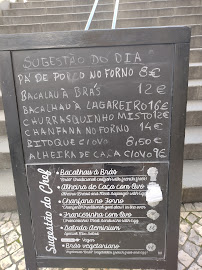 SUGESTÃO DO DIA
PÁ DE PORCO NO FORNO 8€
BACALAU À BRÁS 12 €
BACALHAU À LAGAREIRO 16€
CHURRASQUINHO MISTO 12€
CHANFANA NO FORNO 14€
BITOQUE C/OVO 8,50€
ALHEIRA DE CAÇA C/OVO 9€
Sugestão do Chef
Bacalhau à Brás
Alheira de Caça com Ovo
Chanfana no Forno
Francesinha com Ovo
Salada
Vegan
Brás vegetariano